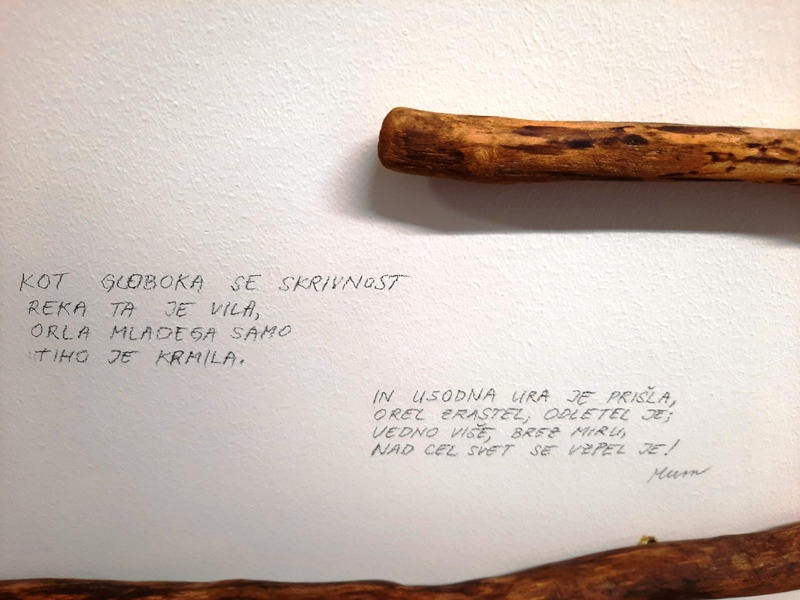 KOT GLOBOKA SE SKRIVNOST
REKA TA JE VILA,
ORLA MLADEGA SAMO
TIHO JE KRMILA.
IN USODNA URA JE PRIŠLA,
OREL ZRASTEL, ODLETEL JE;
VEDNO VIŠE, BREZ MIRU,
NAD CEL SVET SE VZPEL JE!